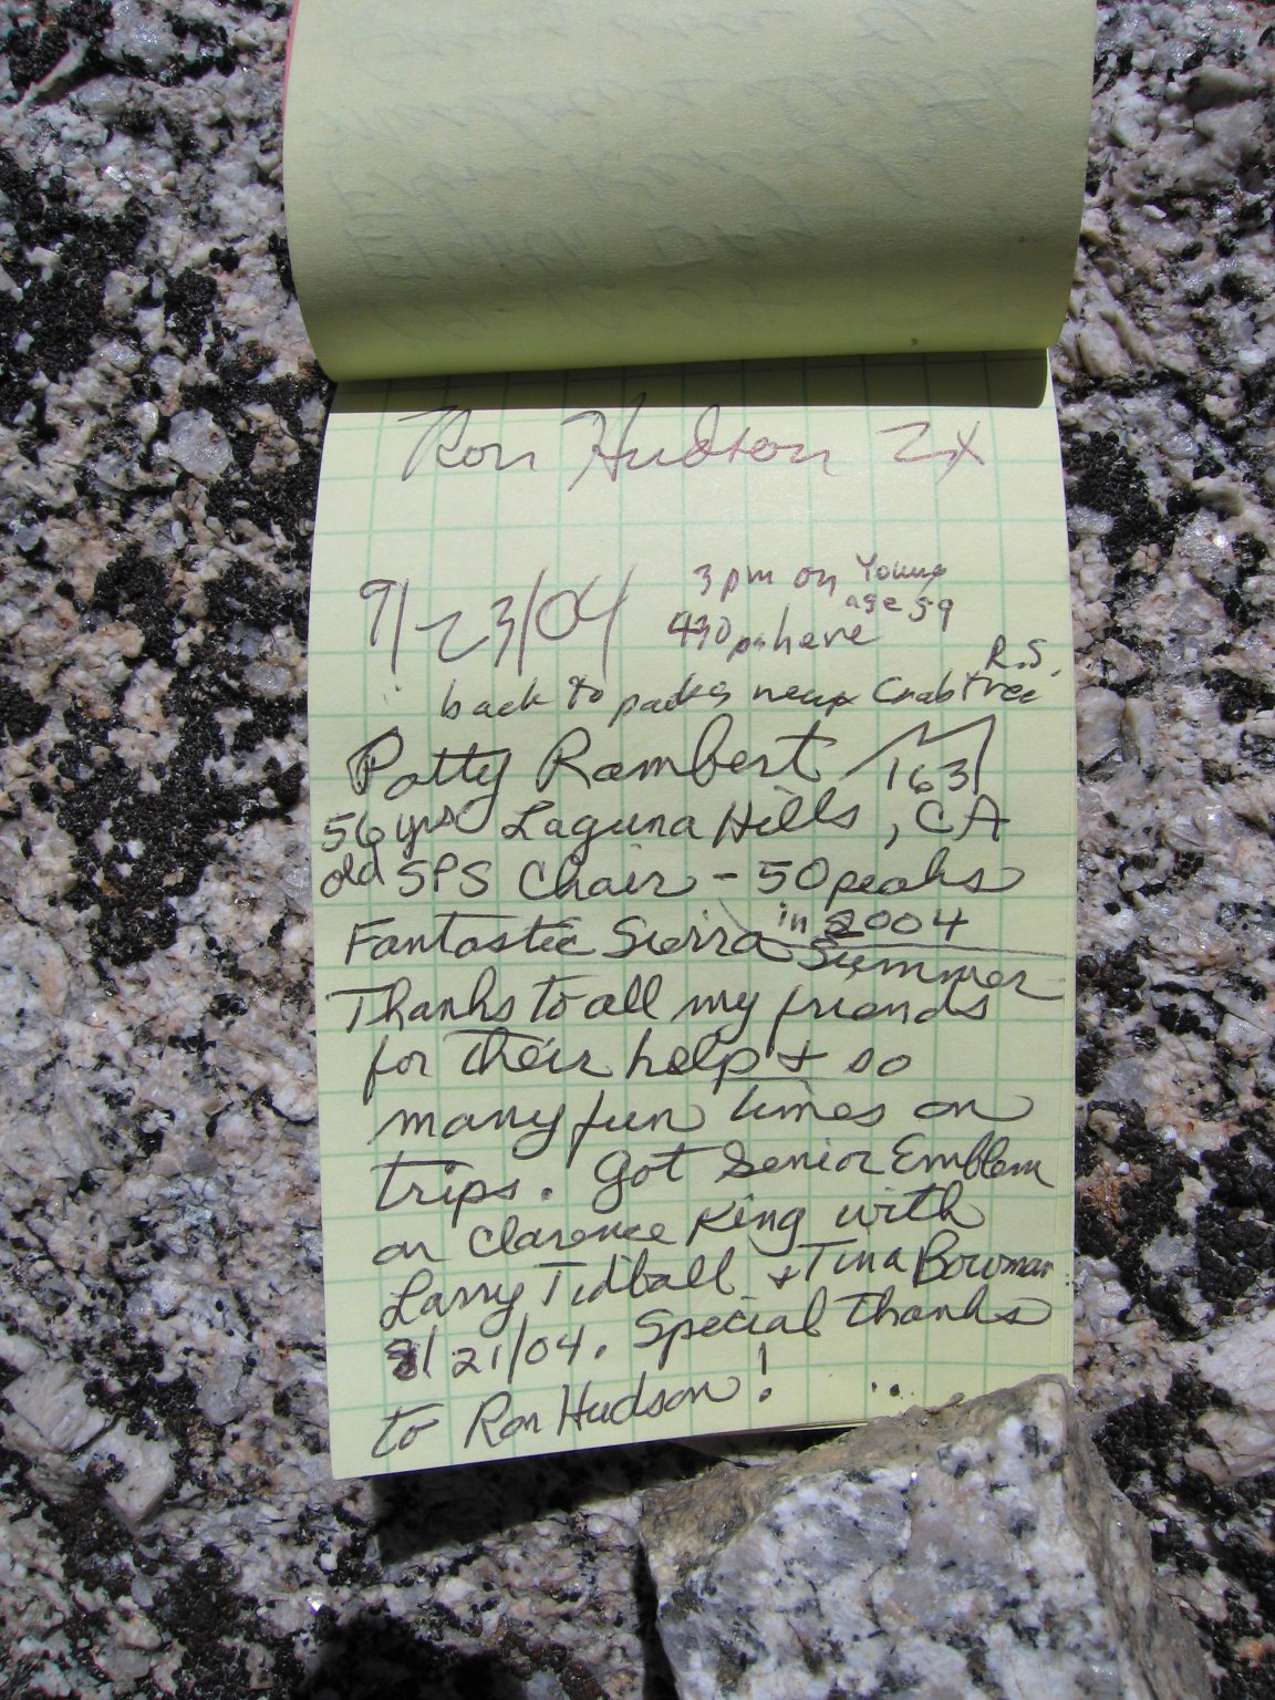 Ron Hudson 2x
9/23/04 3pm on Young
age 59
430 pm here
R.S.
back to packs near Crabtree
Patty Rambert 163
56 yrs Laguna Hills, CA
old SPS Chair - 50 peaks
in 2004
Fantastic Sierra Summer
Thanks to all my friends
for their help + so
many fun times on
trips. Got Senior Emblem
on Clarence King with
Larry Tidball + Tina Bowman
8/21/04. Special thanks
to Ron Hudson!